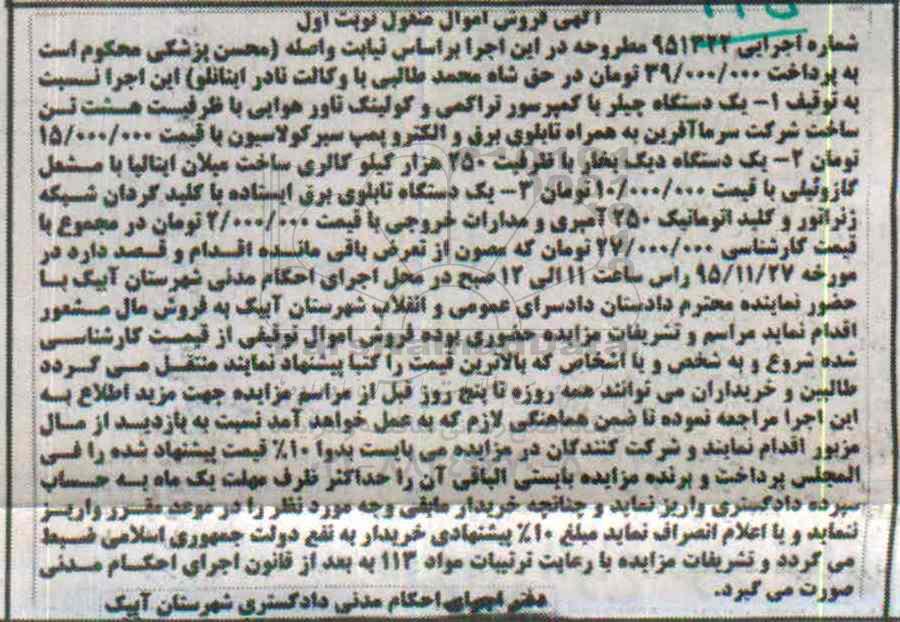 ۲۲۵
آگهی فروش اموال منقول نوبت اول
شماره اجرایی ۹۵۱۳۲۲ مطروحه در این اجرا براساس نیابت واصله (محسن پزشکی محکوم است
به پرداخت ۳۹/۰۰۰/۰۰۰ تومان در حق شاه محمد طالبی با وکالت نادر اینانلو) این اجرا نسبت
به توقیف ۱- یک دستگاه چیلر با کمپرسور تراکمی و کولینگ تاور هوایی با ظرفیت هشت تن
ساخت شرکت سرماآفرین به همراه تابلوی برق و الکترو پمپ سیرکولاسیون با قیمت ۱۵/۰۰۰/۰۰۰
تومان ۲- یک دستگاه دیگ بخار با ظرفیت ۲۵۰ هزار کیلو کالری ساخت میلان ایتالیا با مشعل
گازوئیلی با قیمت ۱۰/۰۰۰/۰۰۰ تومان ۳- یک دستگاه تابلوی برق ایستاده با کلید گردان شبکه
ژنراتور و کلید اتوماتیک ۲۵۰ آمپری و مدارات خروجی با قیمت ۲/۰۰۰/۰۰۰ تومان در مجموع با
قیمت کارشناسی ۲۷/۰۰۰/۰۰۰ تومان که مصون از تعرض باقی مانده اقدام و قصد دارد در
مورخه ۹۵/۱۱/۲۷ راس ساعت ۱۱ الی ۱۲ صبح در محل اجرای احکام مدنی شهرستان آبیک با
حضور نماینده محترم دادستان دادسرای عمومی و انقلاب شهرستان آبیک به فروش مال مشعور
اقدام نماید مراسم و تشریفات مزایده حضوری بوده فروش اموال توقیفی از قیمت کارشناسی
شده شروع و به شخص و یا اشخاص که بالاترین قیمت را کتبا پیشنهاد نمایند منتقل می گردد
طالبین و خریداران می توانند همه روزه تا پنج روز قبل از مراسم مزایده جهت مزید اطلاع به
این اجرا مراجعه نموده تا ضمن هماهنگی لازم که به عمل خواهد آمد نسبت به بازدید از مال
مزبور اقدام نمایند و شرکت کنندگان در مزایده می بایست بدوا ۱۰٪ قیمت پیشنهاد شده را فی
المجلس پرداخت و برنده مزایده بایستی الباقی آن را حداکثر ظرف مهلت یک ماه به حساب
سپرده دادگستری واریز نماید و چنانچه خریدار مابقی وجه مورد نظر را در موعد مقرر واریز
ننماید و یا اعلام انصراف نماید مبلغ ۱۰٪ پیشنهادی خریدار به نفع دولت جمهوری اسلامی ضبط
می گردد و تشریفات مزایده با رعایت ترتیبات مواد ۱۱۳ به بعد از قانون اجرای احکام مدنی
صورت می گیرد.
دفتر اجرای احکام مدنی دادگستری شهرستان آبیک